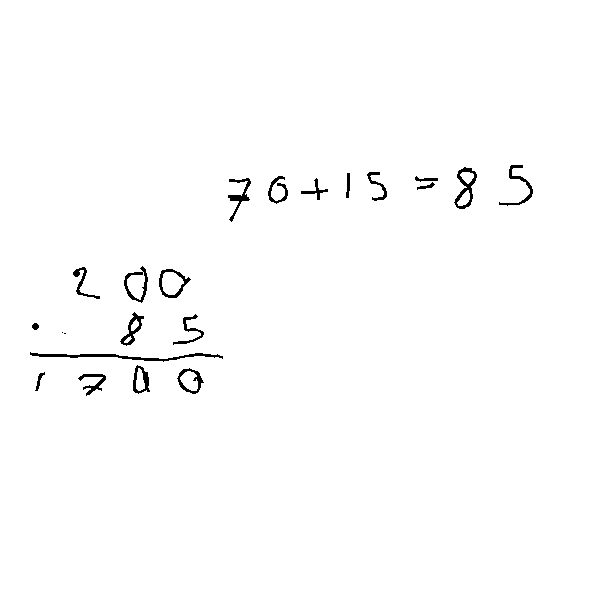 70+15=85
200
· 85
1700